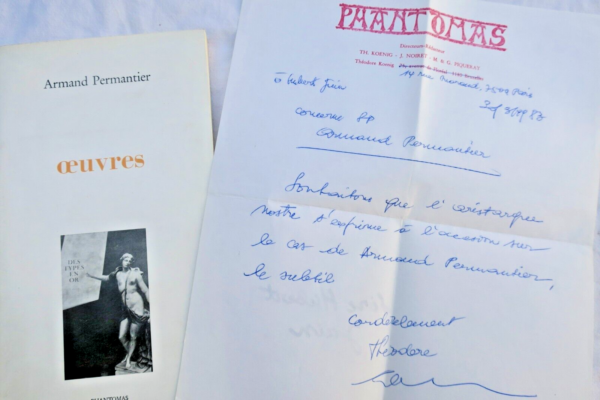 Armand Permantier
œuvres
DES
TYPES
EN
OR
PHANTOMAS
PHANTOMAS
Directeurs-Éditeurs
TH. KOENIG - J. NOIRET - M. & G. PIQUERAY
Théodore Koenig
à Hubert Juin
concerne Sp
Armand Permantier
Souhaitons que l'aristarque
nostre s'exprime à l'occasion sur
le cas de Armand Permantier,
le subtil
Cordialement
Théodore